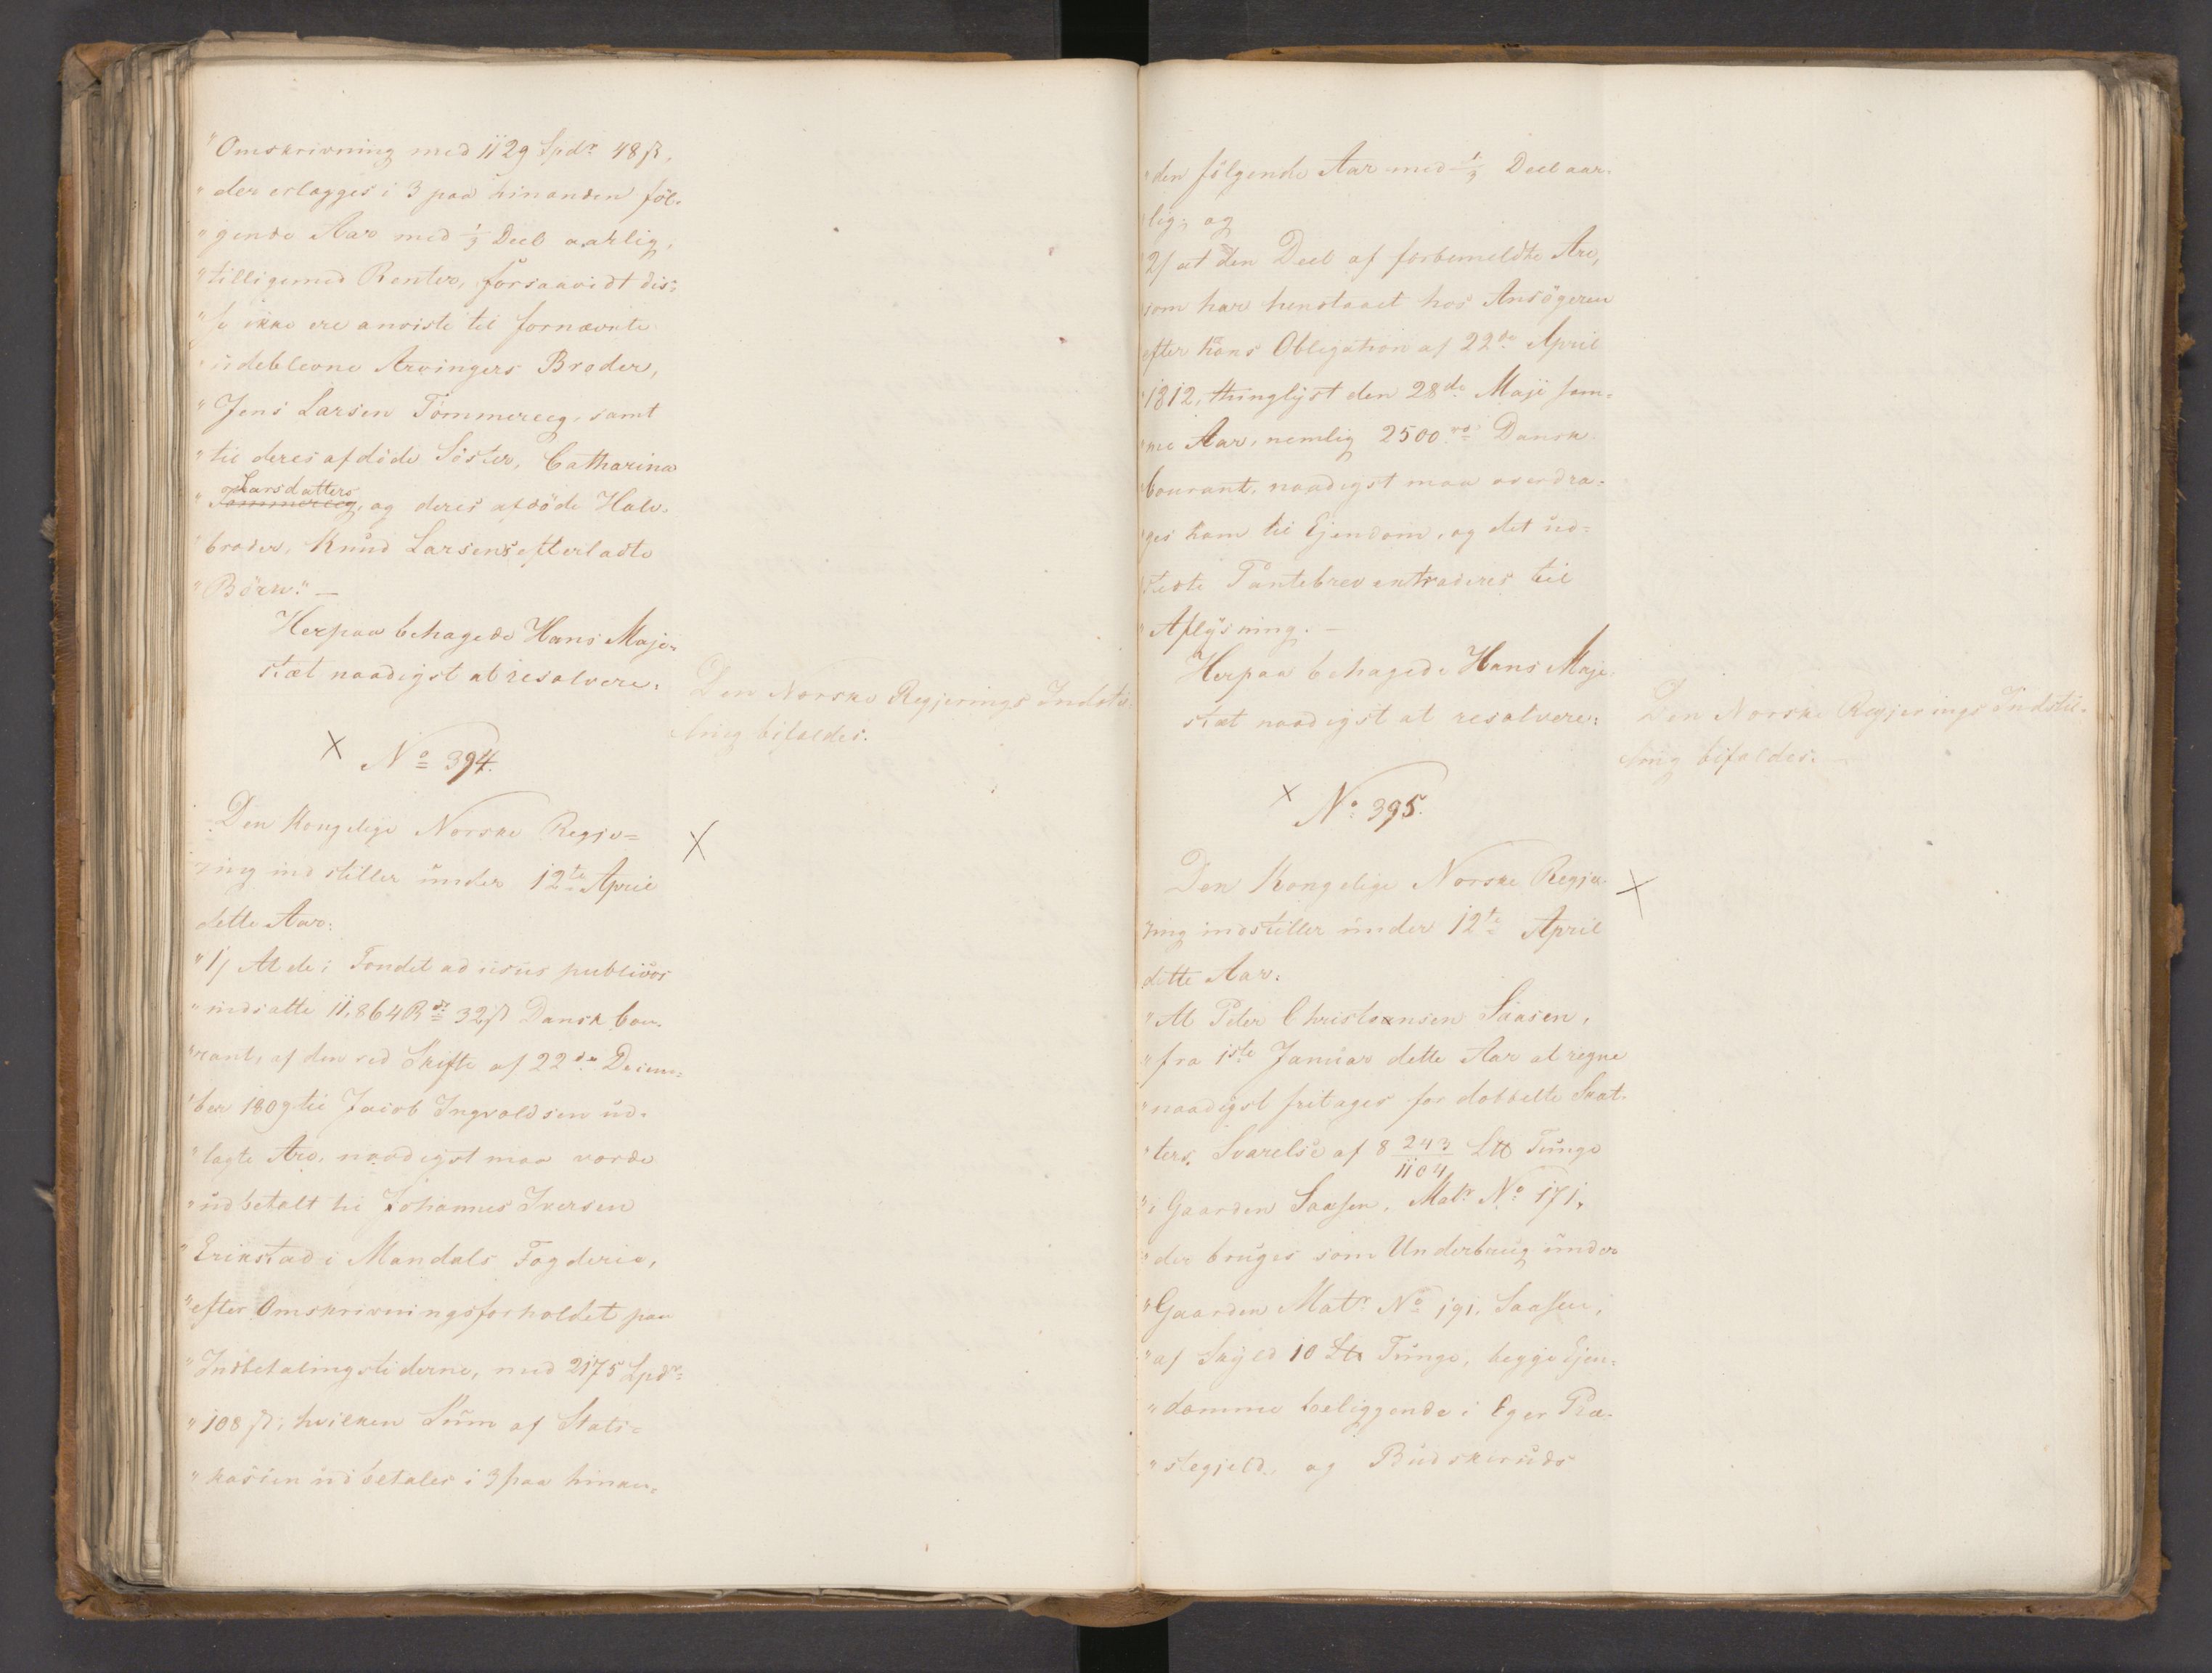 "Omskrivning med 1129 Spdr 48 ß,
"der erlægges i 3 paa hinanden föl-
"gende Aar med 1/3 Deel aarlig,
"tilligemed Renter, forsaavidt dis-
"se ikke ere anviste til fornævnte
"udeblevne Arvingers Broder,
"Jens Larsen Tömmereeg, samt
"til deres afdöde Söster, Catharina
Larsdatters
"Tommereeg, og deres afdöde Halv-
"broder, Knud Larsens efterladte
"Börn." —
Herpaa behagede Hans Maje-
stæt naadigst at resolvere:
Den Norske Regjerings Indstil-
ling bifaldes.
X No 394.
Den Kongelige Norske Regje-
X
ring indstiller under 12te April
dette Aar:
"1/ At de i Fondet ad usus publicos
"indsatte 11,864 Rdr 32 ß Dansk Cou-
"rant, af den ved Skifte af 22de Decem-
"ber 1809 til Jacob Ingvoldsen ud-
"lagte Arv, naadigst maa vorde
"udbetalt til Johannes Iversen
"Erikstad i Mandals Fogderie,
"efter Omskrivningsforholdet paa
"Indbetalingstiderne, med 2175 Spdr
"108 ß; hvilken Sum af Stats-
"kassen udbetales i 3 paa hinan-
"den fölgende Aar med 1/3 Deel aar-
"lig; og
"2/ at den Deel af forbemeldte Arv,
"som har henstaaet hos Ansögeren
"efter hans Obligation af 22de April
"1812, thinglyst den 28de Maji sam-
"me Aar, nemlig 2500 rd Dansk
"Courant, naadigst maa overdra-
"ges ham til Ejendom, og det ud-
"stedte Pantebrev extraderes til
"Aflysning. —
Herpaa behagede Hans Maje-
stæt naadigst at resolvere:
Den Norske Regjerings Indstil-
ling bifaldes. —
X No 395.
Den Kongelige Norske Regje-
X
ring indstiller under 12te April
dette Aar:
"At Peder Christensen Saasen,
"fra 1ste Januar dette Aar at regne
"naadigst fritages for dobbelte Skat-
"ters Svarelse af 8 243/1104 L℔ Tunge
"i Gaarden Saasen, Matr No 171,
"der bruges som Underbrug under
"Gaarden Matr No 191, Saasen,
"af Skyld 10 L℔ Tunge, begge Ejen-
"domme beliggende i Eger Præ-
"stegjeld, og Budskeruds